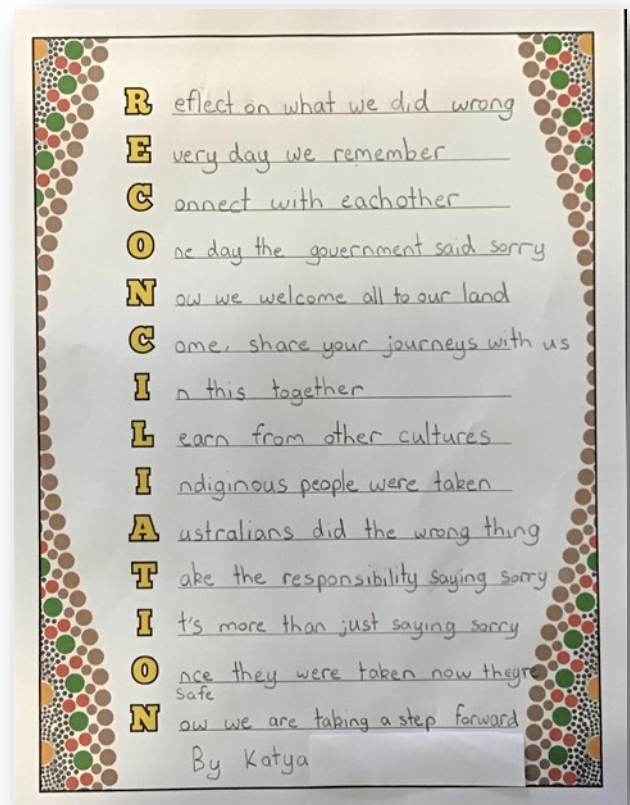 Reflect on what we did wrong
Every day we remember
Connect with eachother
One day the government said sorry
Now we welcome all to our land
Come, share your journeys with us
In this together
Learn from other cultures
Indiginous people were taken
Australians did the wrong thing
Take the responsibility saying sorry
It's more than just saying sorry
Once they were taken now theyre
safe
Now we are taking a step forward
By Katya